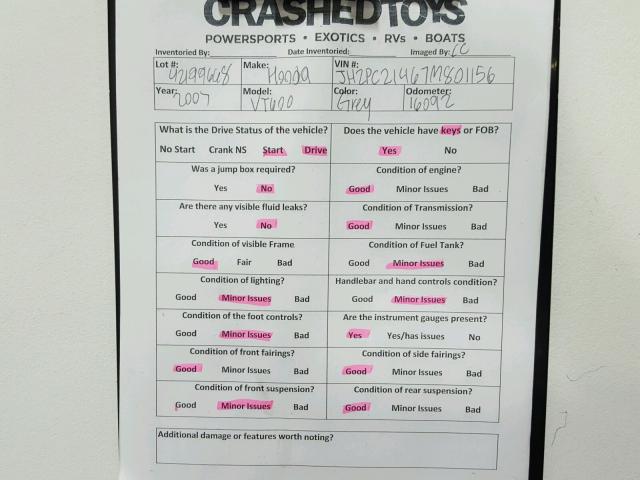 CRASHEDTOYS
POWERSPORTS • EXOTICS • RVs • BOATS
Inventoried By: Date Inventoried: Imaged By: CC
Lot #: 42199668 Make: Honda VIN #: JH2PC21467M801156
Year: 2007 Model: VT600 Color: Grey Odometer: 16092
What is the Drive Status of the vehicle? Does the vehicle have keys or FOB?
No Start Crank NS Start Drive Yes No
Was a jump box required? Condition of engine?
Yes No Good Minor Issues Bad
Are there any visible fluid leaks? Condition of Transmission?
Yes No Good Minor Issues Bad
Condition of visible Frame Condition of Fuel Tank?
Good Fair Bad Good Minor Issues Bad
Condition of lighting? Handlebar and hand controls condition?
Good Minor Issues Bad Good Minor Issues Bad
Condition of the foot controls? Are the instrument gauges present?
Good Minor Issues Bad Yes Yes/has issues No
Condition of front fairings? Condition of side fairings?
Good Minor Issues Bad Good Minor Issues Bad
Condition of front suspension? Condition of rear suspension?
Good Minor Issues Bad Good Minor Issues Bad
Additional damage or features worth noting?